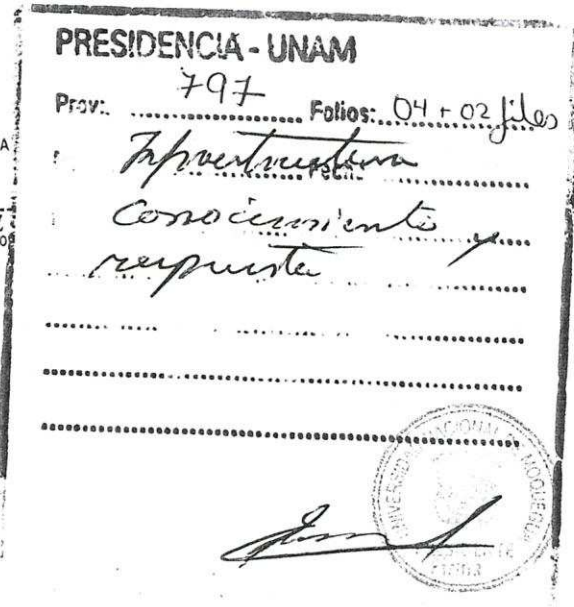 PRESIDENCIA - UNAM
Prov: 797 Folios: 04 + 02 files
Infraestructura
Conocimiento y
respuesta
UNIVERSIDAD NACIONAL DE MOQUEGUA